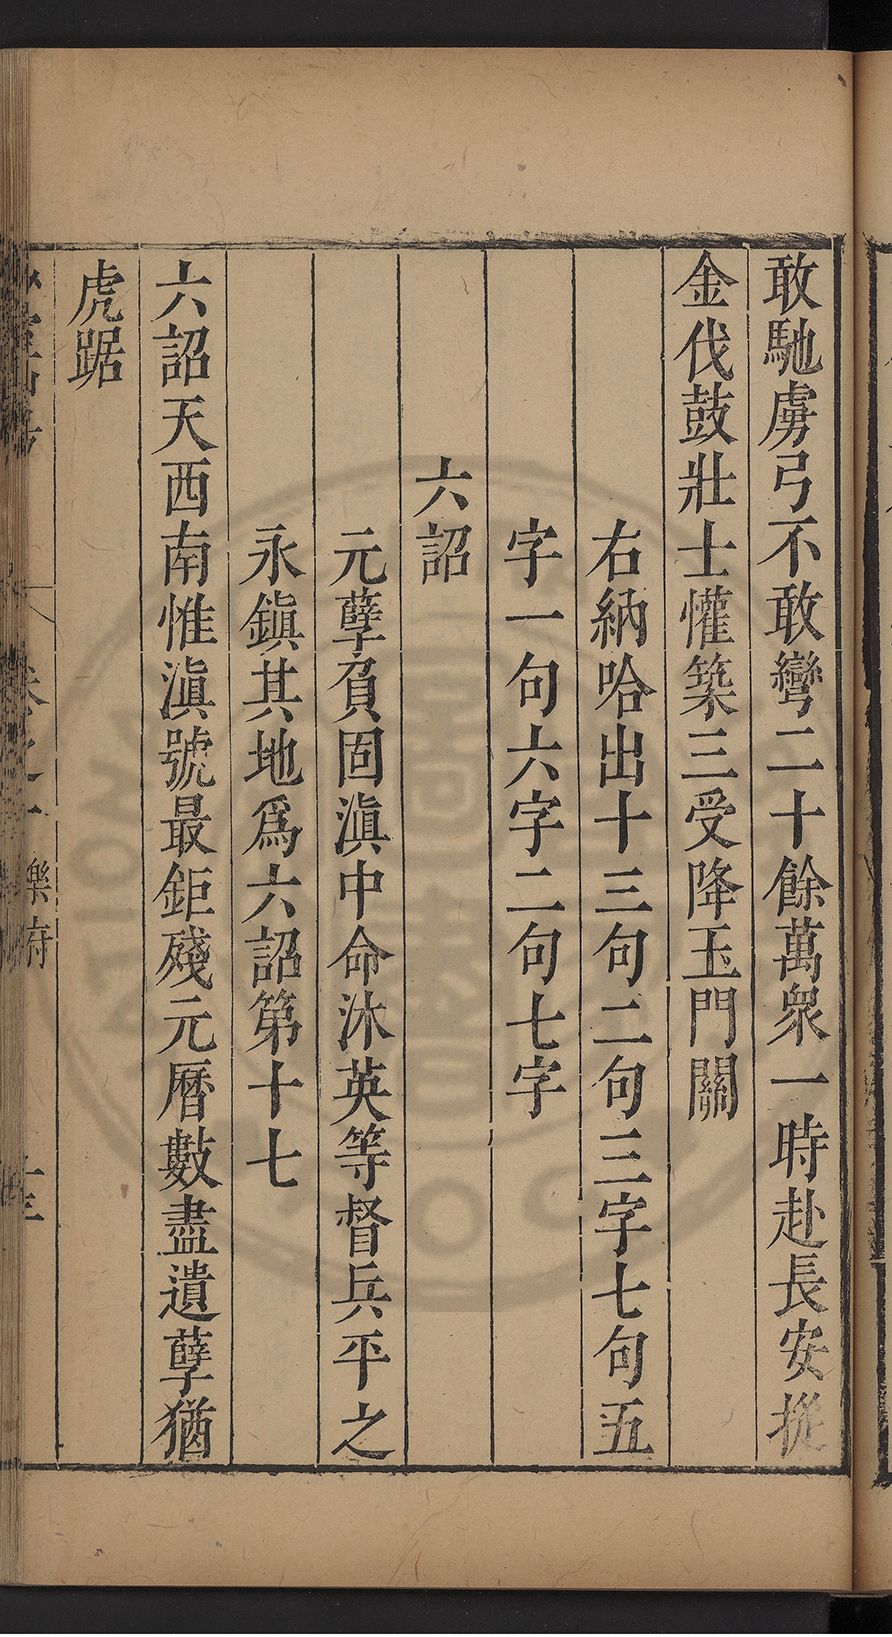 敢馳虜弓不敢彎二十餘萬衆一時赴長安摐
金伐鼓壯士懽築三受降玉門關
右納哈出十三句二句三字七句五
字一句六字二句七字
六詔
元孽負固滇中命沐英等督兵平之
永鎭其地爲六詔第十七
六詔天西南惟滇號最鉅殘元曆數盡遺孽猶
虎踞
卷之一 樂府